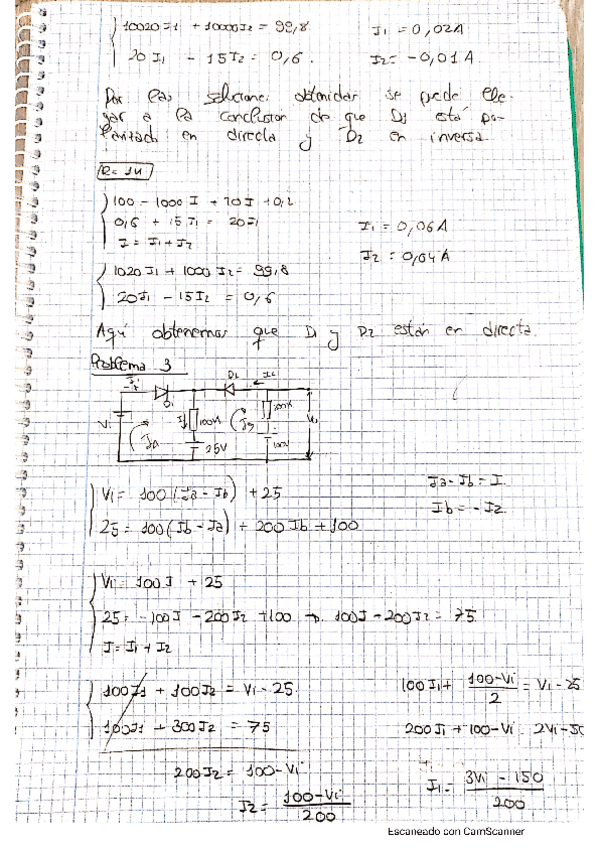 10020 I1 + 10000 I2 = 99,8   I1 = 0,02A
20 I1 - 15 I2 = 0,6.   I2 = -0,01 A
Por las soluciones obtenidas se puede lle-
gar a la conclusión de que D1 está po-
larizado en directa y D2 en inversa.
R = 1K
100 - 1000 I + 20 I + 0,2
0,6 + 15 I1 = 20 I1   I1 = 0,06A
I = I1 + I2   I2 = 0,04 A
1020 I1 + 1000 I2 = 99,8
20 I1 - 15 I2 = 0,6
Aquí obtenemos que D1 y D2 están en directa.
Problema 3
D2 I2
D1
Vi Ia I 100K Ib 200K
25V 100V
Vi = 100 (Ia - Ib) + 25   Ia - Ib = I
25 = 100 (Ib - Ia) + 200 Ib + 100   Ib = - I2
Vi = 100 I + 25
25 = -100 I - 200 I2 + 100 → 100 I - 200 I2 = 75
I = I1 + I2
100 I1 + 100 I2 = Vi - 25   100 I1 + 100-Vi / 2 = Vi - 25
100 I1 + 300 I2 = 75   200 I1 + 100 - Vi = 2Vi - 50
200 I2 = 100 - Vi   I1 = 3Vi - 150 / 200
I2 = 100 - Vi / 200
Escaneado con CamScanner